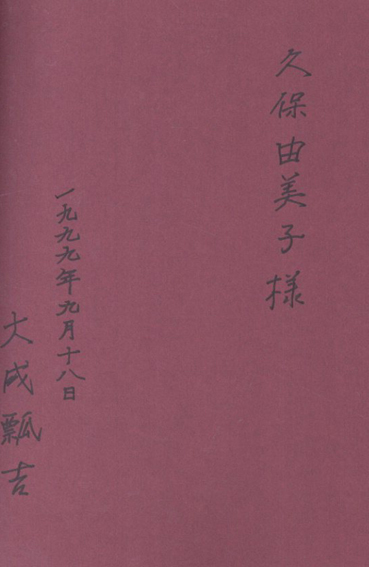 久保由美子様
一九九九年九月十八日
大成瓢吉